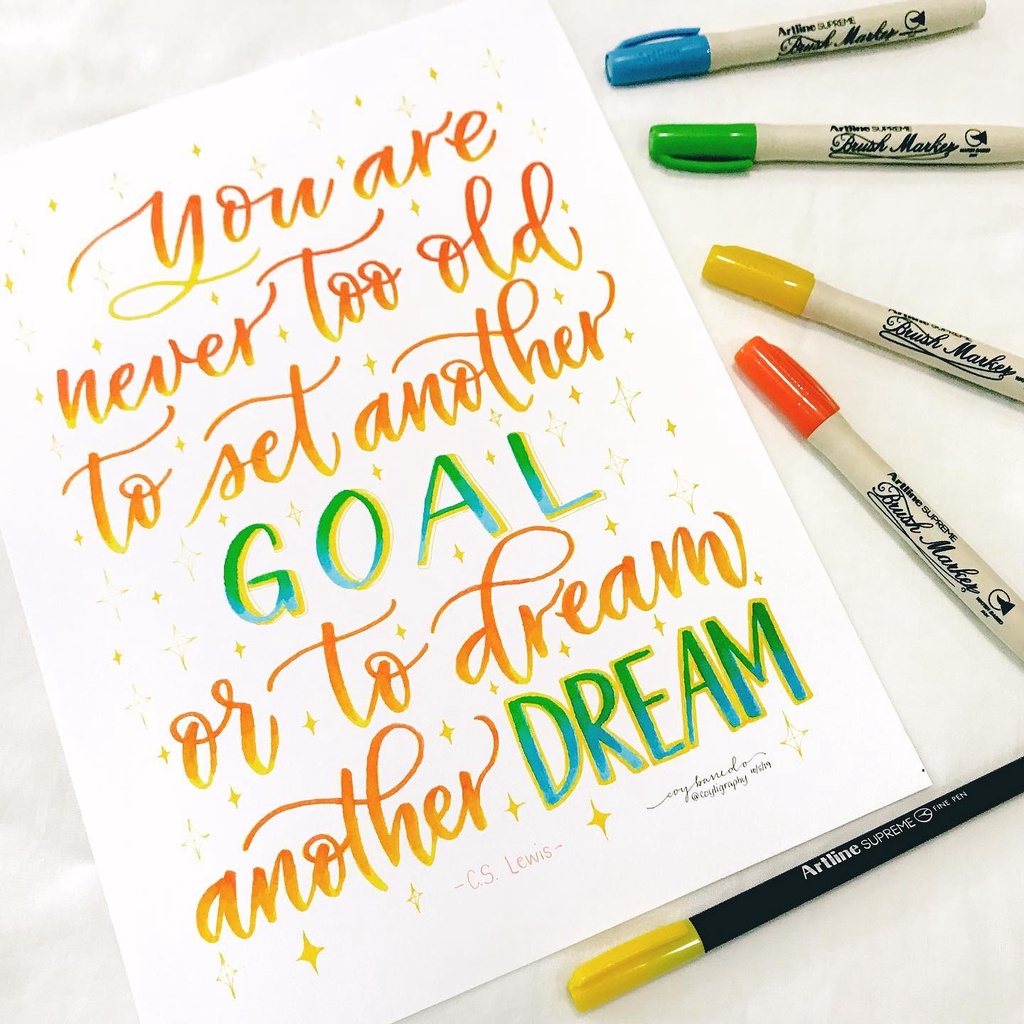 You are
never too old
to set another
GOAL
or to dream
another DREAM
coybarredo
@coyligraphy 10/5/19
-C.S. Lewis-
Artline SUPREME
Brush Marker
Artline SUPREME
Brush Marker
Brush Marker
Artline SUPREME
Brush Marker
Artline SUPREME FINE PEN